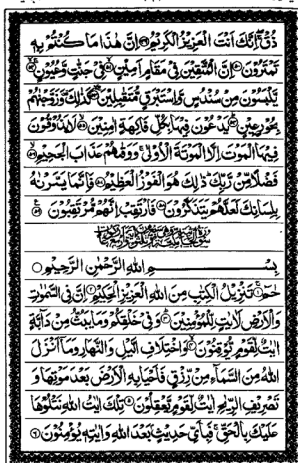 ذُقْ اِنَّكَ اَنْتَ الْعَزِيْزُ الْكَرِيْمُ ۝ اِنَّ هٰذَا مَا كُنْتُمْ بِهٖ
تَمْتَرُوْنَ ۝ اِنَّ الْمُتَّقِيْنَ فِيْ مَقَامٍ اَمِيْنٍ ۝ فِيْ جَنّٰتٍ وَّعُيُوْنٍ ۝
يَّلْبَسُوْنَ مِنْ سُنْدُسٍ وَّاِسْتَبْرَقٍ مُّتَقٰبِلِيْنَ ۝ كَذٰلِكَ وَزَوَّجْنٰهُمْ
بِحُوْرٍ عِيْنٍ ۝ يَدْعُوْنَ فِيْهَا بِكُلِّ فَاكِهَةٍ اٰمِنِيْنَ ۝ لَا يَذُوْقُوْنَ
فِيْهَا الْمَوْتَ اِلَّا الْمَوْتَةَ الْاُوْلٰى وَوَقٰهُمْ عَذَابَ الْجَحِيْمِ ۝
فَضْلًا مِّنْ رَّبِّكَ ذٰلِكَ هُوَ الْفَوْزُ الْعَظِيْمُ ۝ فَاِنَّمَا يَسَّرْنٰهُ
بِلِسَانِكَ لَعَلَّهُمْ يَتَذَكَّرُوْنَ ۝ فَارْتَقِبْ اِنَّهُمْ مُّرْتَقِبُوْنَ ۝
بِسْمِ اللّٰهِ الرَّحْمٰنِ الرَّحِيْمِ ۝
حٰمٓ ۝ تَنْزِيْلُ الْكِتٰبِ مِنَ اللّٰهِ الْعَزِيْزِ الْحَكِيْمِ ۝ اِنَّ فِي السَّمٰوٰتِ
وَالْاَرْضِ لَاٰيٰتٍ لِّلْمُؤْمِنِيْنَ ۝ وَفِيْ خَلْقِكُمْ وَمَا يَبُثُّ مِنْ دَآبَّةٍ
اٰيٰتٌ لِّقَوْمٍ يُّوْقِنُوْنَ ۝ وَاخْتِلَافِ الَّيْلِ وَالنَّهَارِ وَمَآ اَنْزَلَ
اللّٰهُ مِنَ السَّمَآءِ مِنْ رِّزْقٍ فَاَحْيَا بِهِ الْاَرْضَ بَعْدَ مَوْتِهَا وَ
تَصْرِيْفِ الرِّيٰحِ اٰيٰتٌ لِّقَوْمٍ يَّعْقِلُوْنَ ۝ تِلْكَ اٰيٰتُ اللّٰهِ نَتْلُوْهَا
عَلَيْكَ بِالْحَقِّ فَبِاَيِّ حَدِيْثٍۢ بَعْدَ اللّٰهِ وَاٰيٰتِهٖ يُؤْمِنُوْنَ ۝